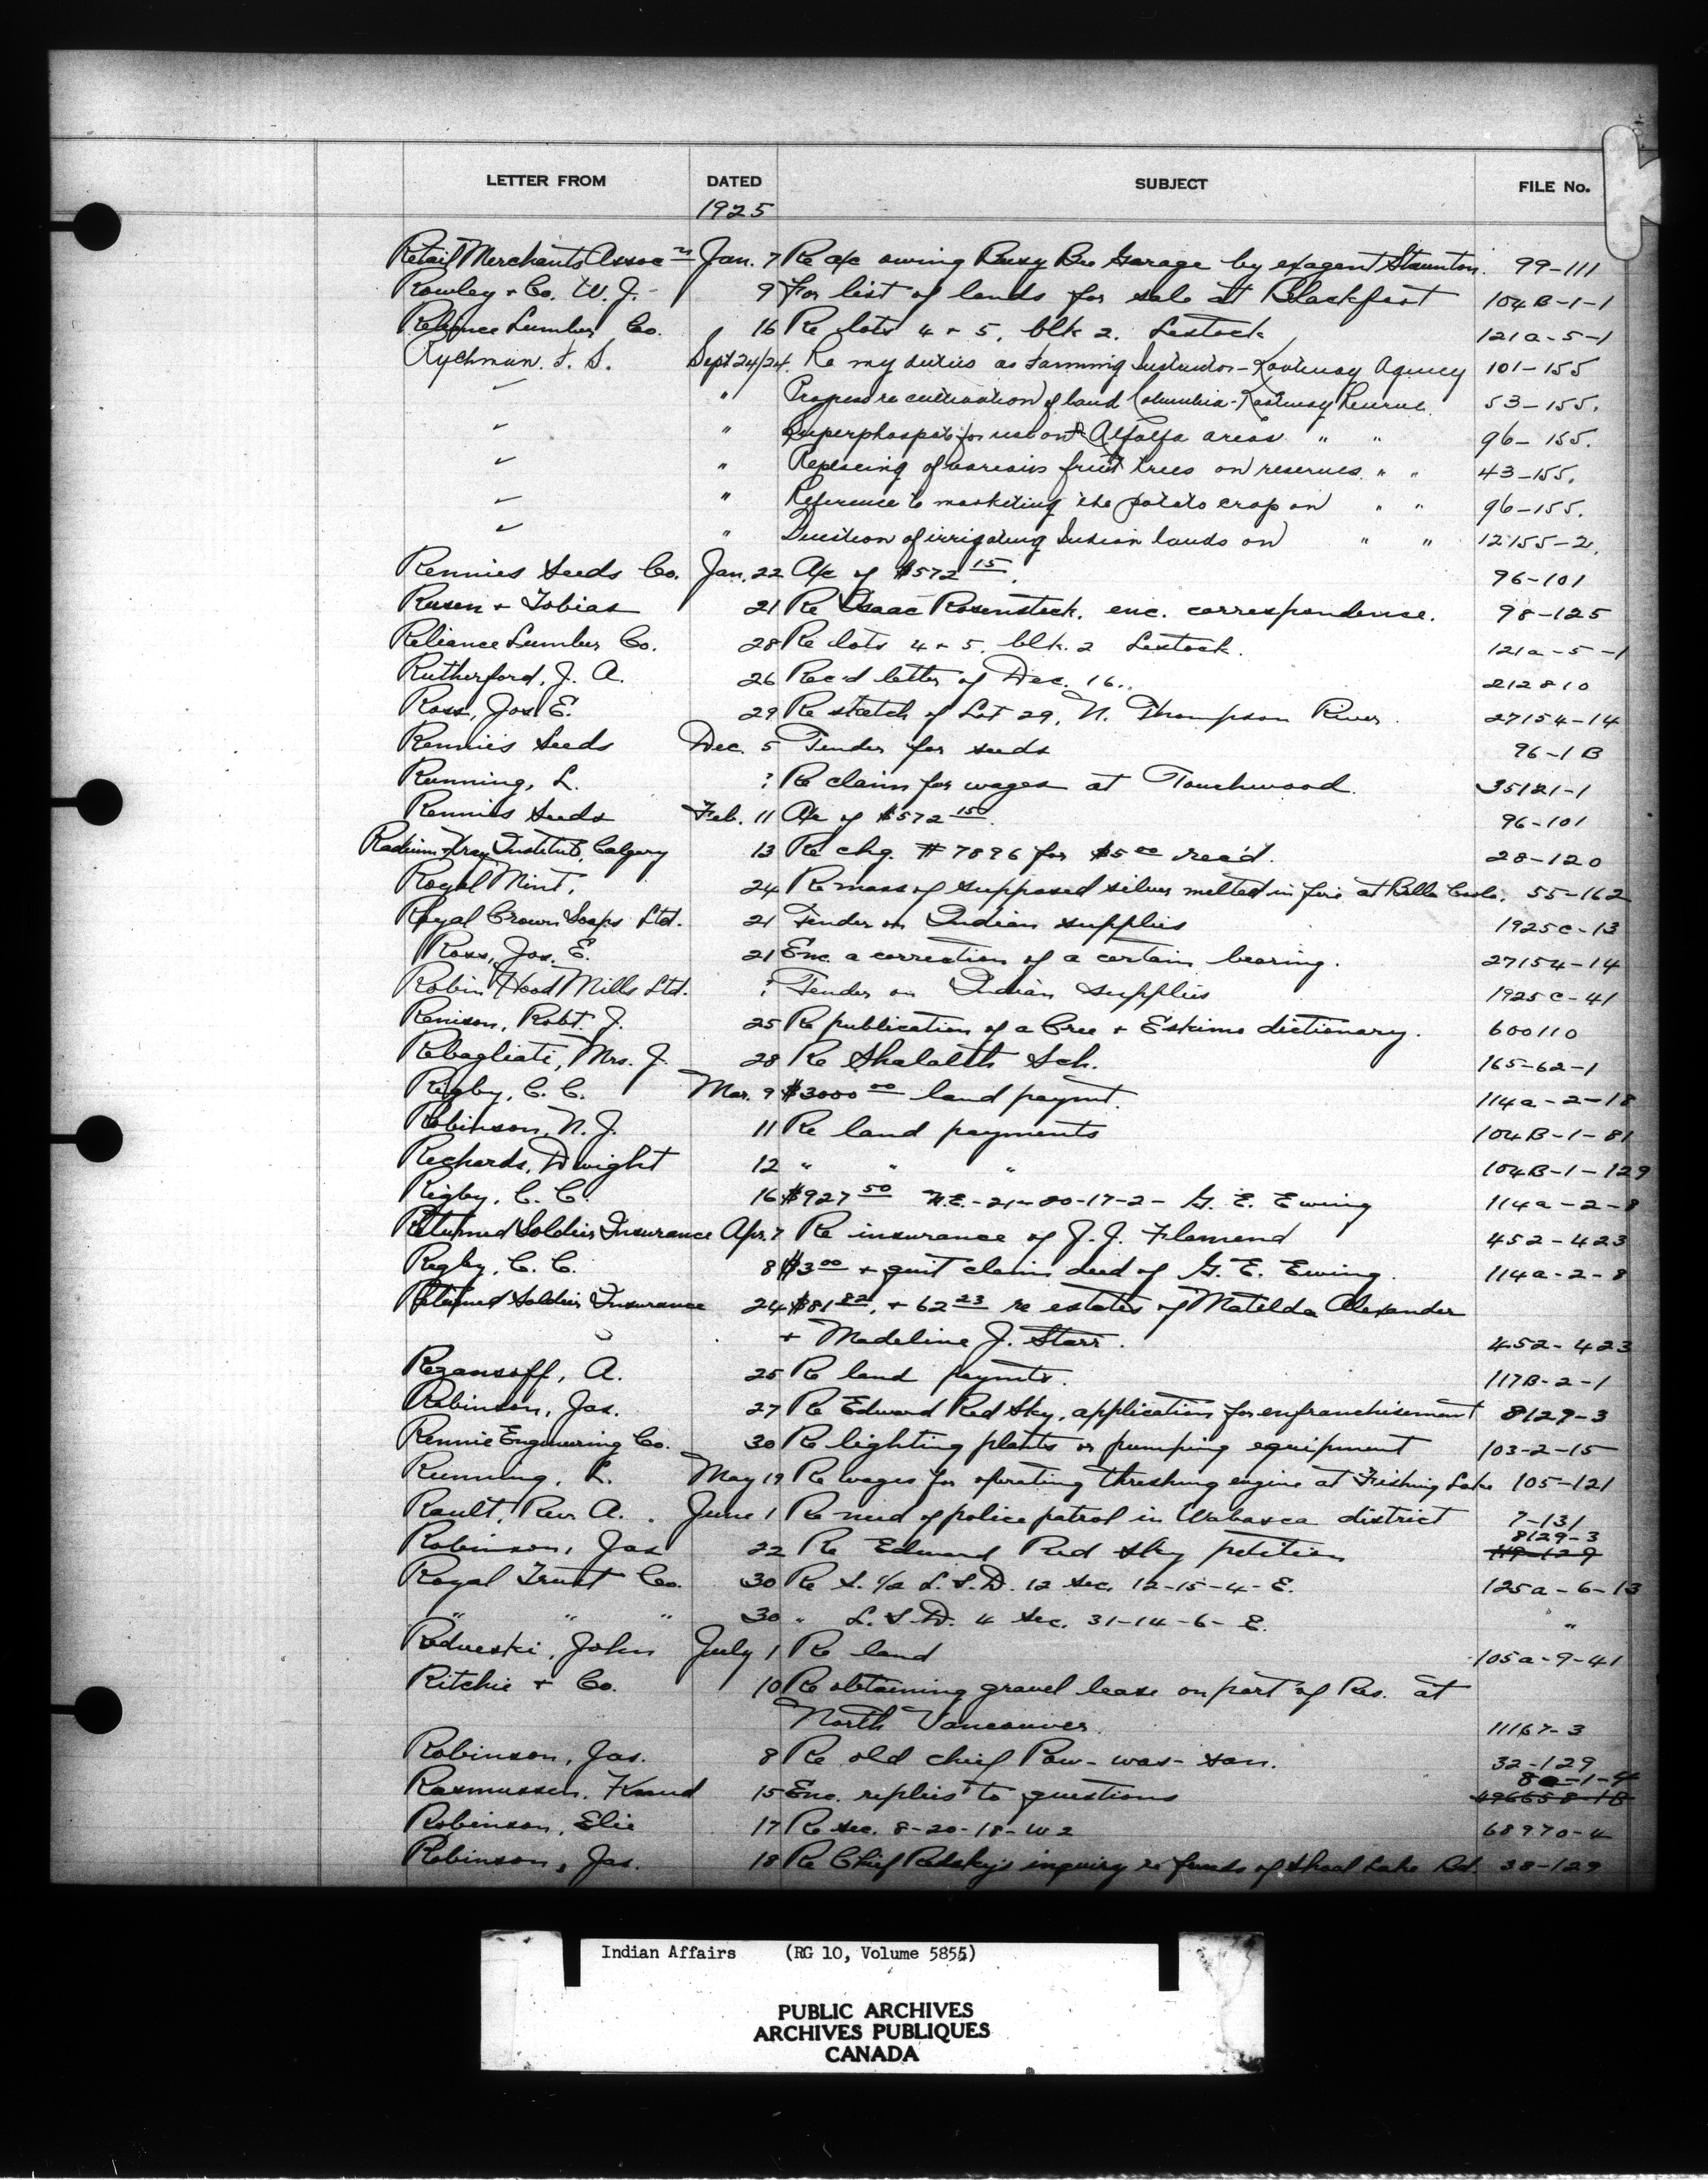 LETTER FROM DATED SUBJECT FILE No.
1925
Retail Merchants Assoc'n Jan. 7 Re a/c owing Busy Bee Garage by exagent Staunton. 99-111
Rowley & Co. W. J. - 9 For list of lands for sale at Blackfoot 104B-1-1
Reliance Lumber Co. 16 Re lots 4 & 5, blk 2. Lestock 121a-5-1
Rychman. F. S. Sept 24/24. Re my duties as Farming Instructor - Kootenay Agency 101-155
✓ " Progress re cultivation of land Columbia-Kootenay Reserve. 53-155.
✓ " Superphospate for use on Alfalfa areas " " 96-155.
✓ " of various fruit trees on reserves " " 43-155.
✓ " Reference to marketing the potato crop on " " 96-155.
✓ " Question of irrigating Indian lands on " " 12155-2.
Rennies Seeds Co. Jan. 22 A/c of $572 15. 96-101
Rusen & Tobias 21 Re Isaac Rosensteck. enc. correspondence. 98-125
Reliance Lumber Co. 28 Re lots 4 & 5, blk. 2 Lestock. 121a-5-1
Rutherford, J. A. 26 Rec'd letter of Dec. 16.. 212810
Ross, Jos. E. 29 Re sketch of Lot 29, N. Thompson River. 27154-14
Rennies Seeds Dec. 5 Tender for seeds 96-1B
Running, L. ? Re claim for wages at Touchwood. 35121-1
Rennies Seeds Feb. 11 A/c of $572 150. 96-101
Radium Xray Institute, Calgary 13 Re chq. #7896 for $5 00 rec'd. 28-120
Royal Mint. 24 Re mass of supposed silver melted in fire at Bella Coola. 55-162
Royal Crown Soaps Ltd. 21 Tender on Indian supplies 1925c-13
Ross, Jos. E. 21 Enc. a correction of a certain bearing. 27154-14
Robin Hood Mills Ltd. ? Tender on Indian supplies 1925c-41
Renison, Robt. J. 25 Re publication of a Cree & Eskimo dictionary. 600110
Rebagliati, Mrs. J. 28 Re Shalalth Sch. 165-62-1
Rigby, C. C. Mar. 9 $3000 00 land paymt. 114a-2-18
Robinson, N. J. 11 Re land payments 104B-1-81
Richards, Dwight 12 " " " 104B-1-129
Rigby, C. C. 16 $927 50 N.E.-21-20-17-2- G. E. Ewing 114a-2-8
Returned Soldiers Insurance Apr. 7 Re insurance of J. J. Flamend 452-423
Rigby, C. C. 8 $3 00 & quit claim deed of G. E. Ewing. 114a-2-8
Returned Soldiers Insurance 24 $81 82, & 62 23 re estates of Matilda Alexander
& Madeline J. Starr. 452-423
Rezansoff, A. 25 Re land paymts. 117B-2-1
Robinson, Jas. 27 Re Edward Red Sky, application for enfranchisement 8129-3
Rennie Engineering Co. 30 Re lighting plants or pumping equipment 103-2-15
Running, L. May 19 Re wages for operating threshing engine at Fishing Lake 105-121
Rault, Rev. A. . June 1 Re need of police patrol in Wabasca district 7-131
8129-3
Robinson, Jas 22 Re Edward Red Sky petition
Royal Trust Co. 30 Re S. 1/2 L.S.D. 12 Sec. 12-15-4-E. 125a-6-13
" " " 30 " L.S.D. 4 Sec. 31-14-6-E. "
John July 1 Re land 105a-9-41
Ritchie & Co. 10 Re obtaining gravel lease on part of Res. at
North Vancouver. 11167-3
Robinson, Jas. 8 Re old chief Paw-was-san. 32-129
Rasmussen, Knud 15 Enc. replies to questions
Robinson, Elie 17 Re sec. 8-20-18-W2 68970-4
Robinson, Jas. 18 Re Chief Redsky's inquiry re funds of Shoal Lake Bd. 38-129
Indian Affairs (RG 10, Volume 5855)
PUBLIC ARCHIVES
ARCHIVES PUBLIQUES
CANADA